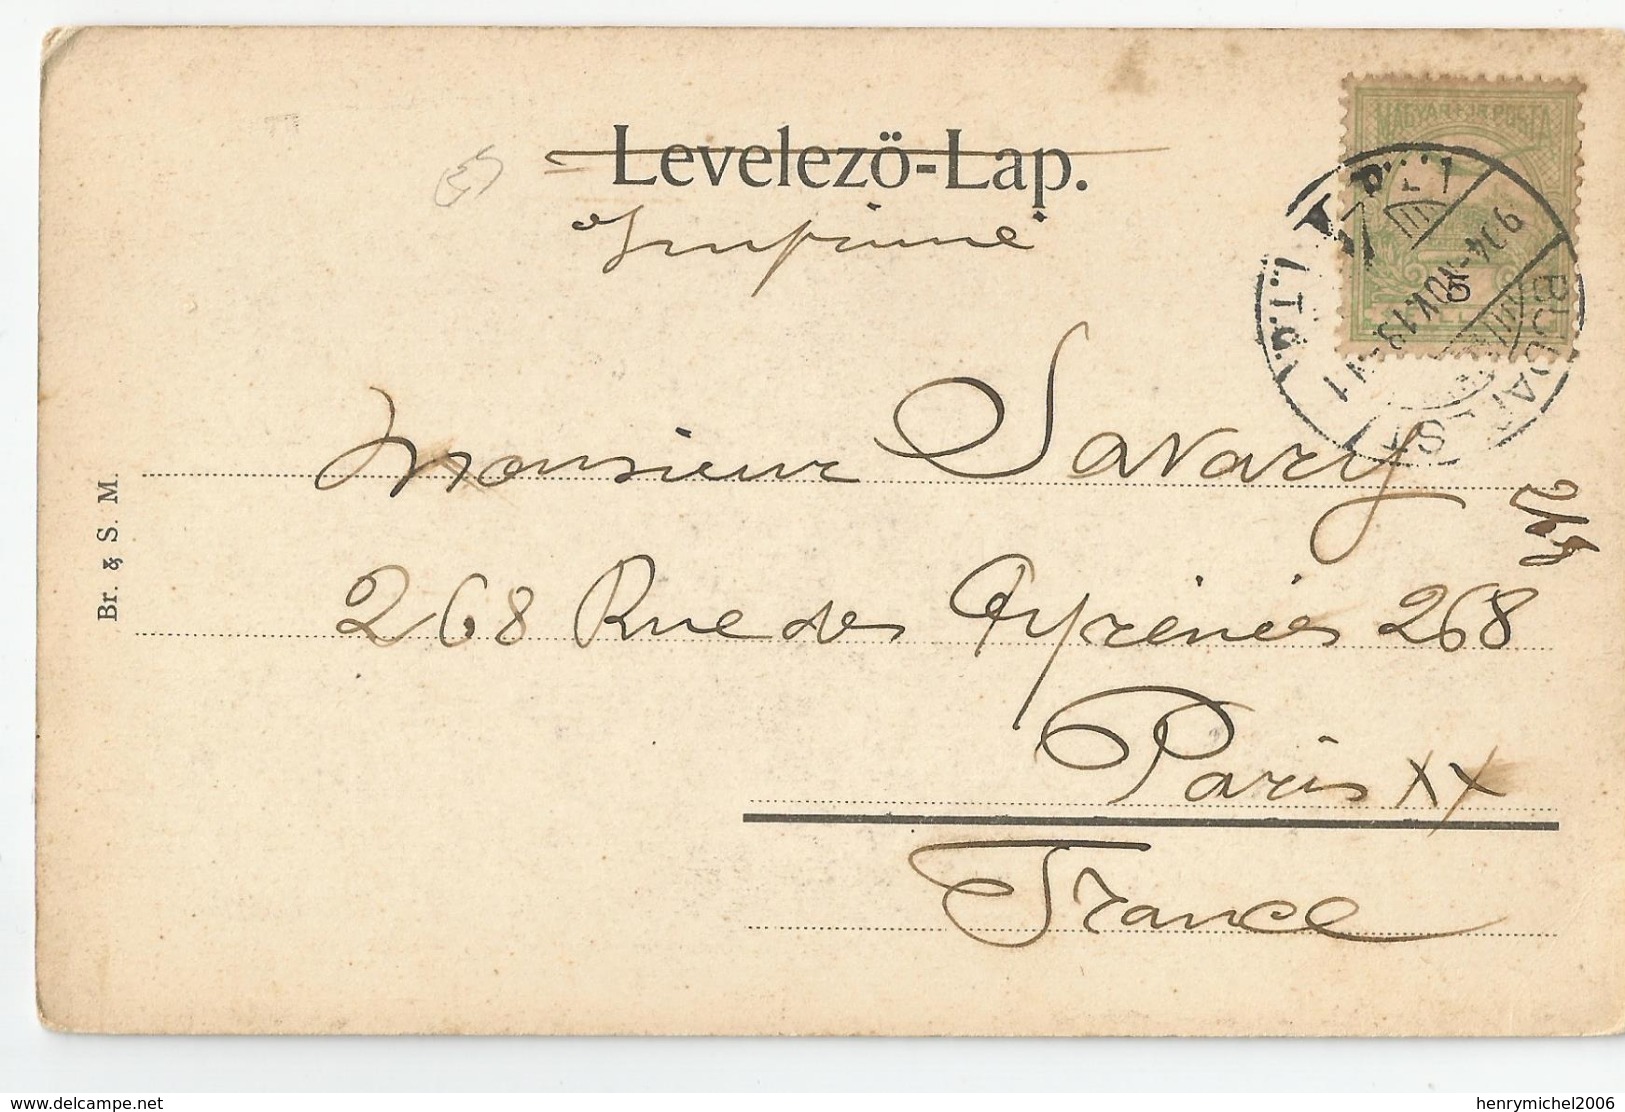 Levelező-Lap.
Imprimé
MAGYAR KIR POSTA
BUDAPEST
904
5
Br. & S. M.
Monsieur Savary
268 Rue des Pyrénées 268
Paris XX
France
www.delcampe.net
henrymichel2006